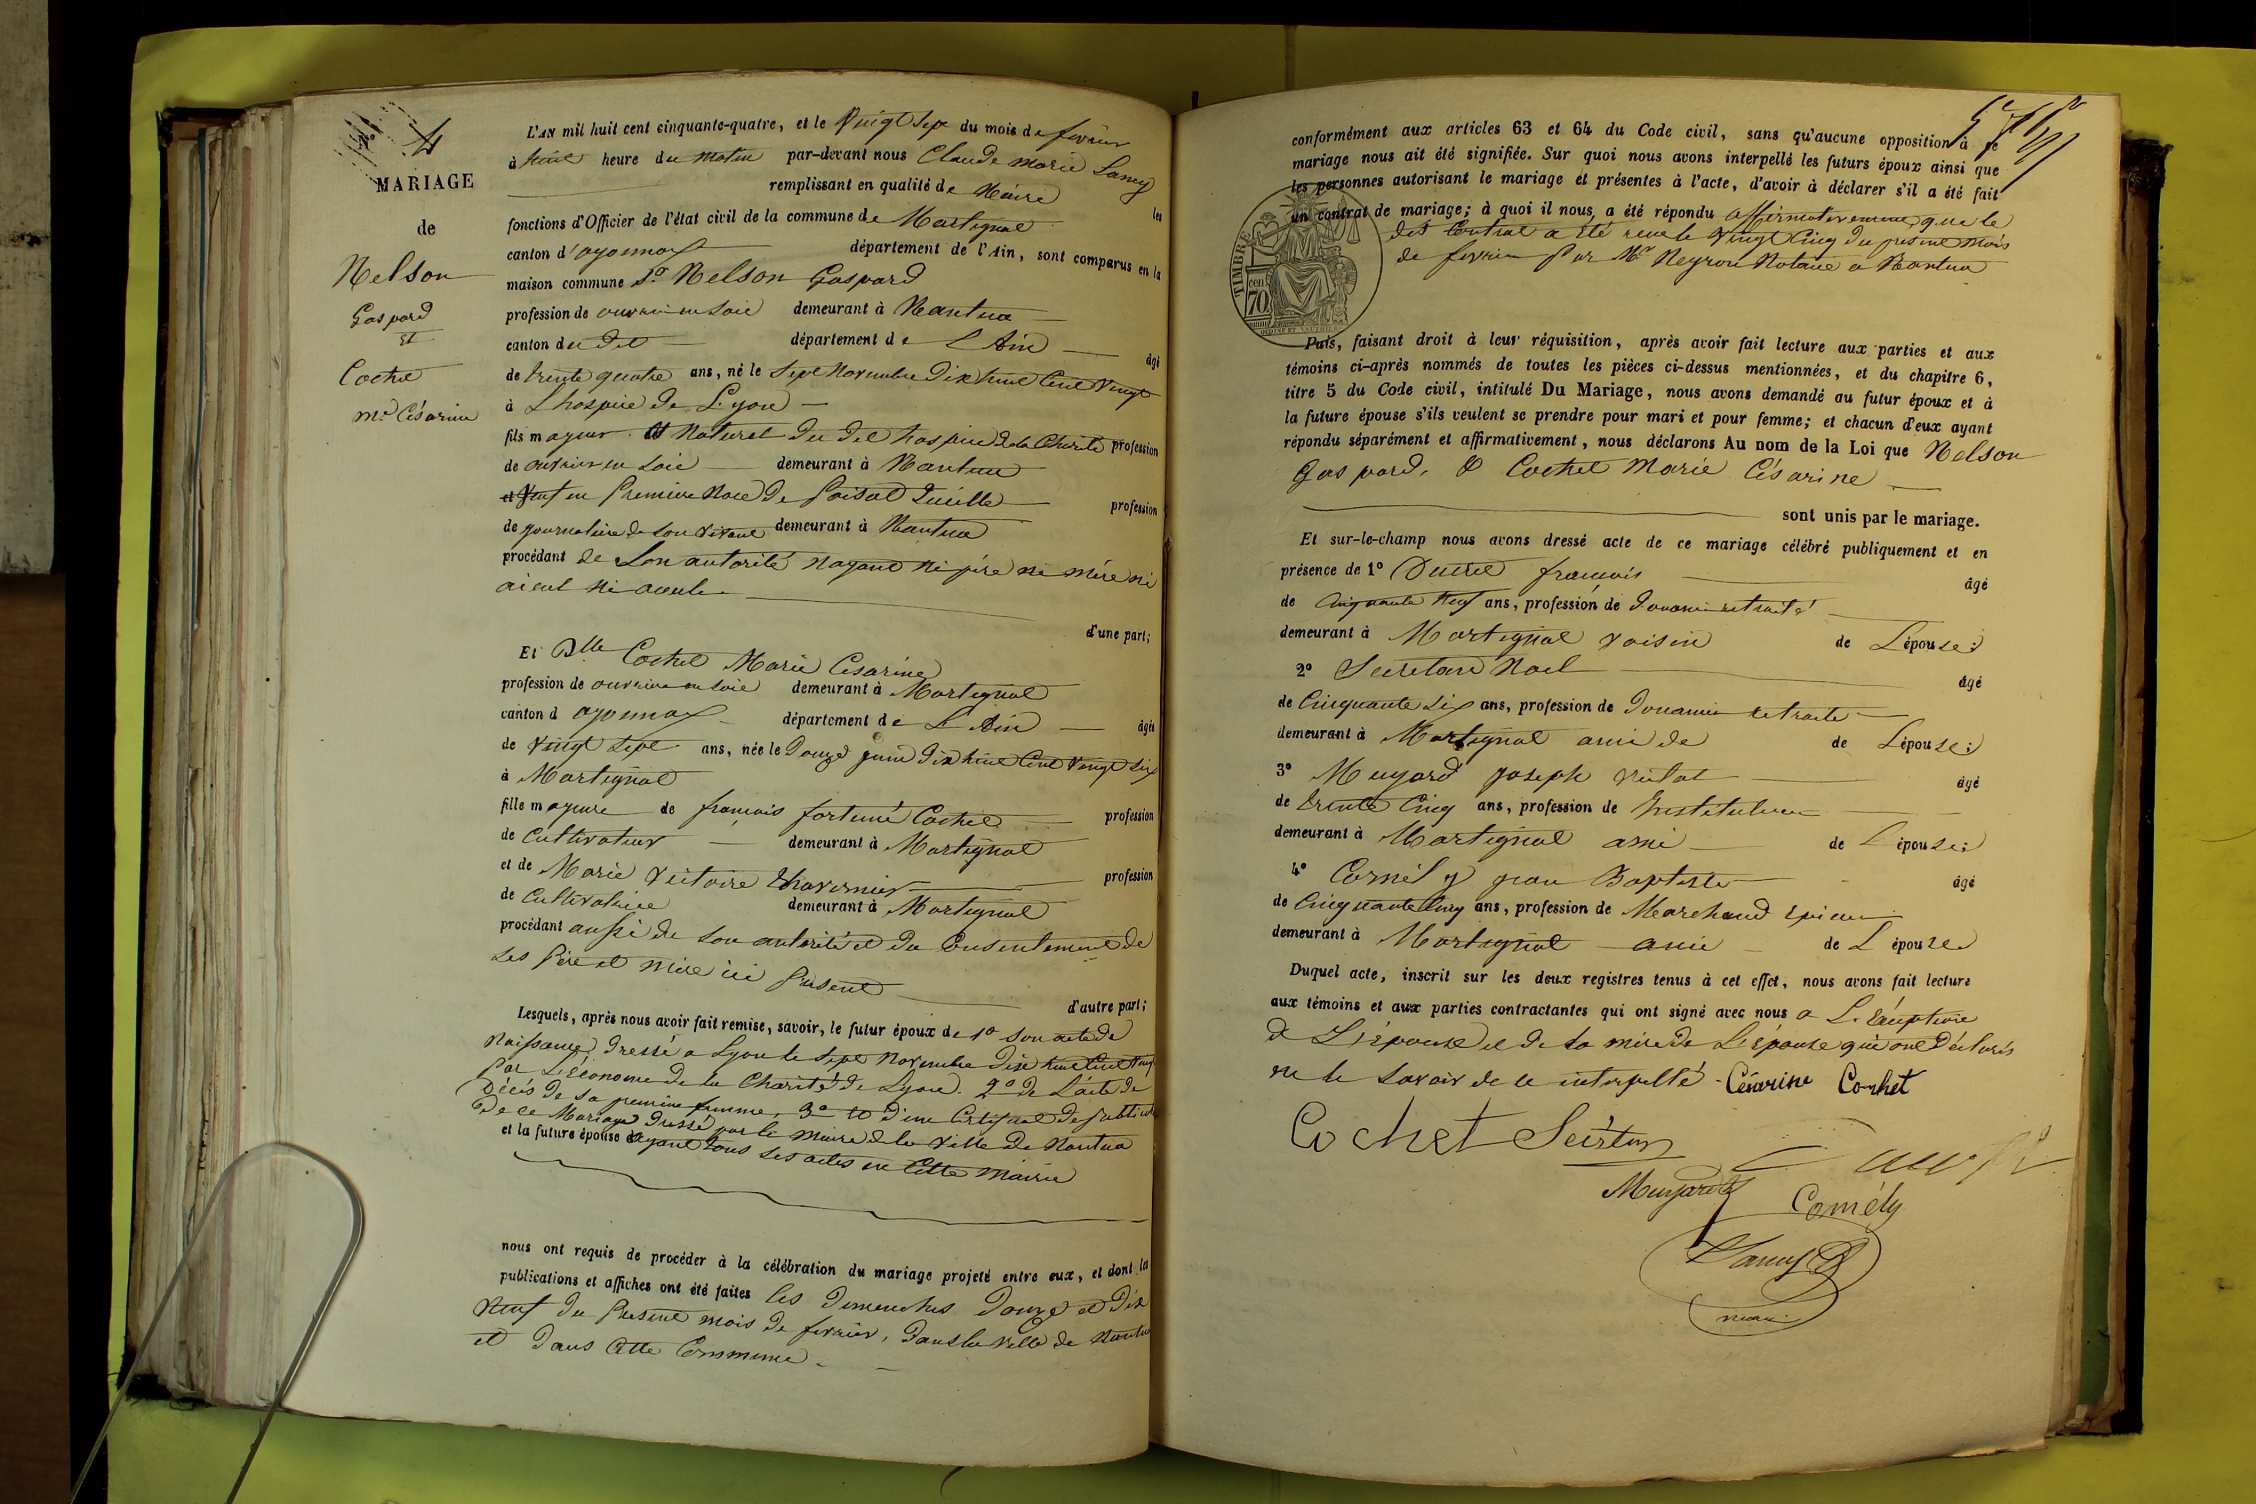 N° 4
MARIAGE
de
Nelson
Gaspard
et
Cochet
Mie Césarine
L'AN mil huit cent cinquante-quatre, et le Vingt sept du mois de fevrier
à huit heure du matin par-devant nous Claude Marie Lancy
remplissant en qualité de Maire les
fonctions d'Officier de l'état civil de la commune de Martignat
canton d'oyonnax département de l'Ain, sont comparus en la
maison commune 1º Nelson Gaspard
profession de ouvrier en soie demeurant à Nantua
canton du dit département de L'Ain âgé
de trente quatre ans, né le sept Novembre Dix huit Cent Vingt
à L'hospice de Lyon
fils majeur et Naturel du dit hospice de la Charité profession
de ouvrier en soie demeurant à Nantua
et Veuf en Premiere Noce de profession
de journaliere de son vivant demeurant à Nantua
procédant de son autorité n'ayant ni père ni mère ni
aieul ni aieule
d'une part;
Et Dlle Cochet Marie Cesarine
profession de ouvriere en soie demeurant à Martignat
canton d'oyonnax département de L'Ain âgée
de vingt sept ans, née le Douze juin dix huit Cent Vingt Six
à Martignat
fille majeure de françois fortuné Cochet profession
de Cultivateur demeurant à Martignat
et de Marie Victoire Thavernier profession
de Cultivatrice demeurant à Martignat
procédant aussi de son autorité et du Consentement de
ses Père et mère ici Présent
d'autre part;
Lesquels, après nous avoir fait remise, savoir, le futur époux de 1º son acte de
Naissance Dressé a Lyon le sept Novembre Dix huit Cent Vingt
Par L'Econome de la Charité de Lyon. 2º de L'acte de
Décès de sa premiere femme, 3º et d'un Certificat de publication
de ce Mariage Dressé par le maire de la ville de Nantua
et la future épouse ayant tous ses actes en Cette Mairie
nous ont requis de procéder à la célébration du mariage projeté entre eux, et dont la
publications et affiches ont été faites les Dimanches Douze et Dix
Neuf du Present mois de fevrier, dans la ville de Nantua
et dans Cette Commune.
conformément aux articles 63 et 64 du Code civil, sans qu'aucune opposition à ce
mariage nous ait été signifiée. Sur quoi nous avons interpellé les futurs époux ainsi que
les personnes autorisant le mariage et présentes à l'acte, d'avoir à déclarer s'il a été fait
un contrat de mariage; à quoi il nous a été répondu affirmativement que le
dit Contrat a été reçu le Vingt Cinq du present mois
de fevrier Par Me Neyron Notaire a Nantua
TIMBRE
cen
70
Puis, faisant droit à leur réquisition, après avoir fait lecture aux parties et aux
témoins ci-après nommés de toutes les pièces ci-dessus mentionnées, et du chapitre 6,
titre 5 du Code civil, intitulé Du Mariage, nous avons demandé au futur époux et à
la future épouse s'ils veulent se prendre pour mari et pour femme; et chacun d'eux ayant
répondu séparément et affirmativement, nous déclarons Au nom de la Loi que Nelson
Gaspard, & Cochet Marie Césarine
sont unis par le mariage.
Et sur-le-champ nous avons dressé acte de ce mariage célébré publiquement et en
présence de 1º françois âgé
de Cinquante Neuf ans, profession de Douanier retraité
demeurant à Martignat voisin de L'épouse;
2º Secretan Noel âgé
de Cinquante Six ans, profession de Douanier retraité
demeurant à Martignat ami de de L'épouse;
3º Muyard joseph Vital âgé
de trente Cinq ans, profession de Instituteur
demeurant à Martignat ami de L'épouse;
4º Cornély jean Baptiste âgé
de Cinquante Cinq ans, profession de Marchand Epicier
demeurant à Martignat ami de L'épouse
Duquel acte, inscrit sur les deux registres tenus à cet effet, nous avons fait lecture
aux témoins et aux parties contractantes qui ont signé avec nous a L'éxception
de L'épouse et de la mère de L'épouse qui ont déclarés
ne le savoir de ce interpellé. Césarine Cochet
Cochet
Muyard Cornély
Lancy
maire